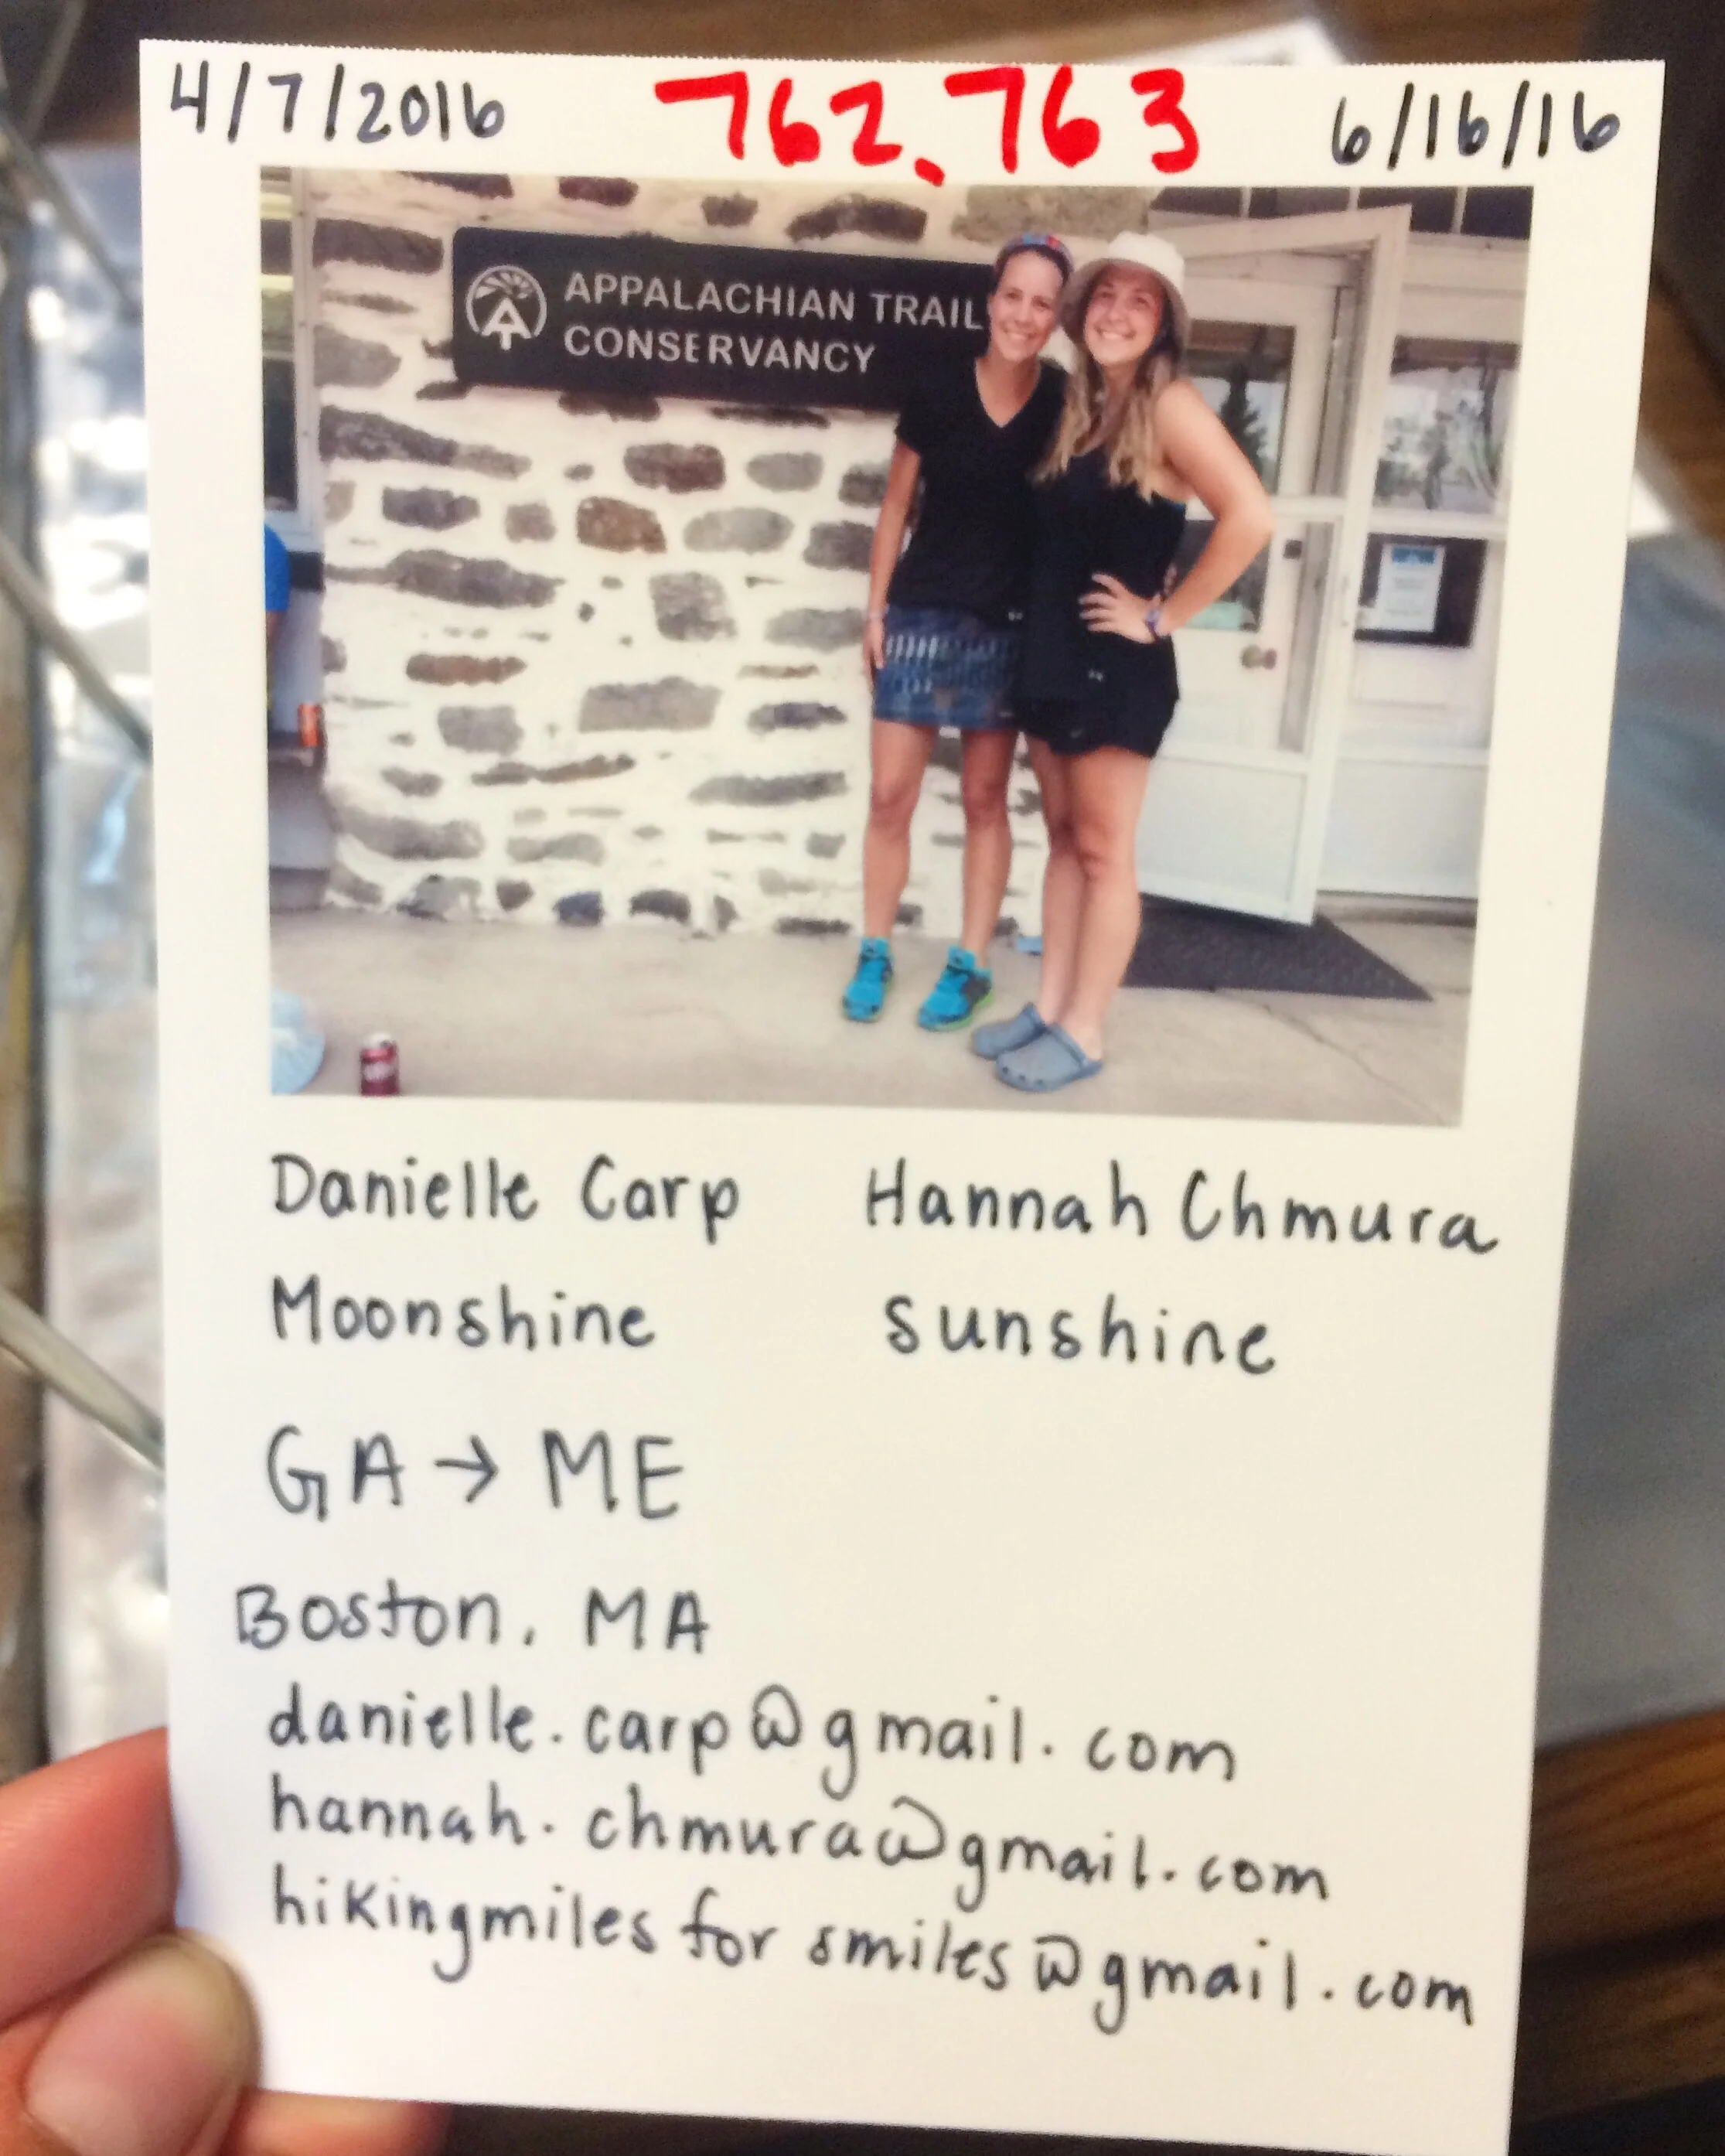 4/7/2016 762.763 6/16/16
APPALACHIAN TRAIL
CONSERVANCY
Danielle Carp Hannah Chmura
Moonshine Sunshine
GA → ME
Boston, MA
danielle.carp@gmail.com
hannah.chmura@gmail.com
hikingmiles for smiles@gmail.com